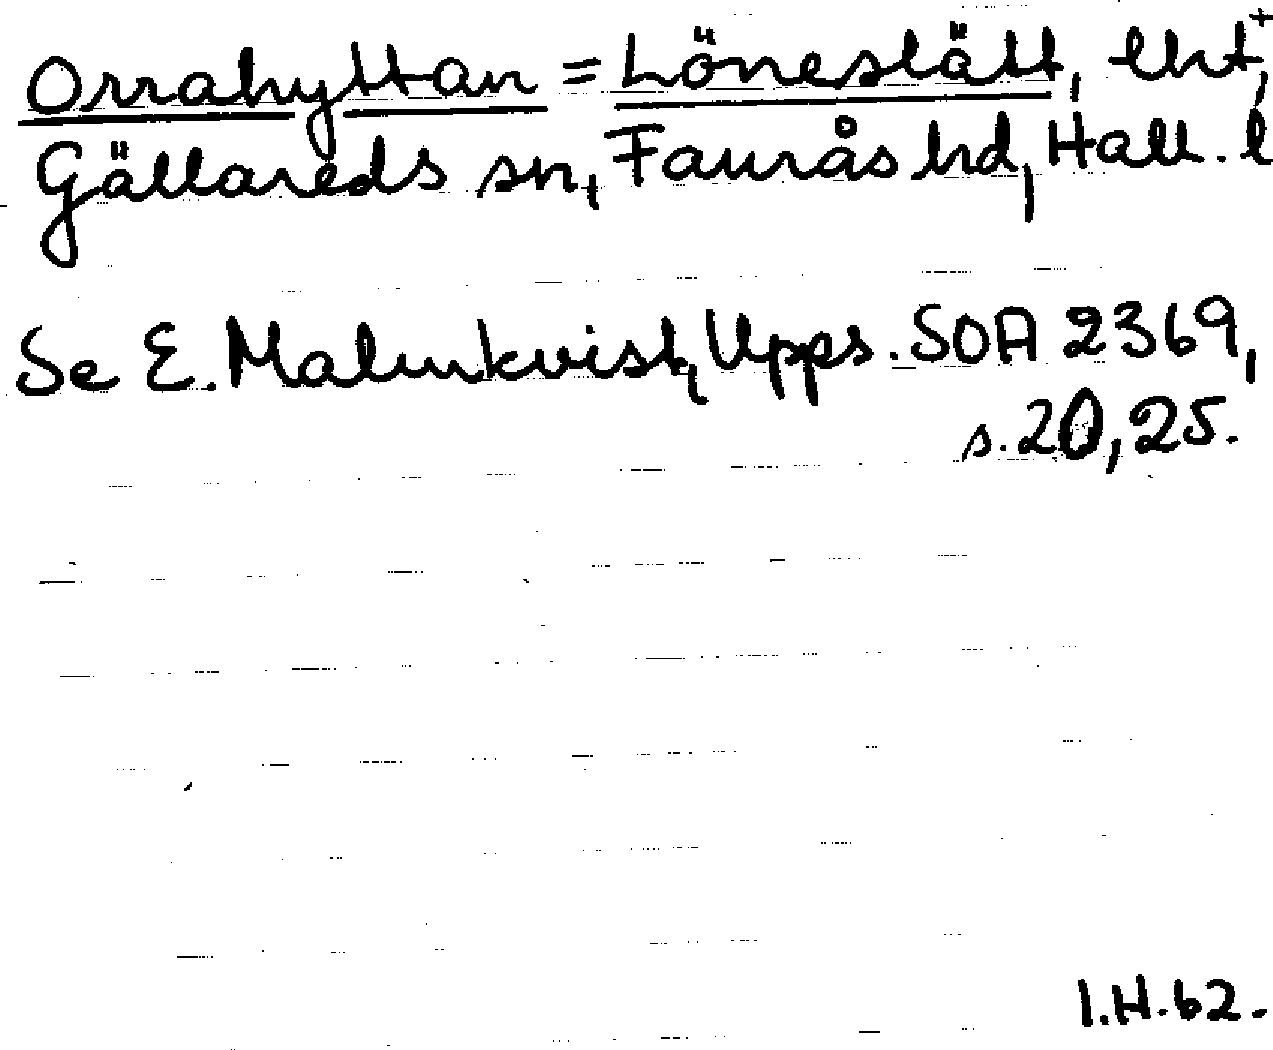 Orrahyttan = Löneslätt, lht+,
Gällareds sn, Faurås hd, Hall. l
Se E. Malmkvist, Upps. SOA 2369,
s. 20, 25.
I.H. 62.